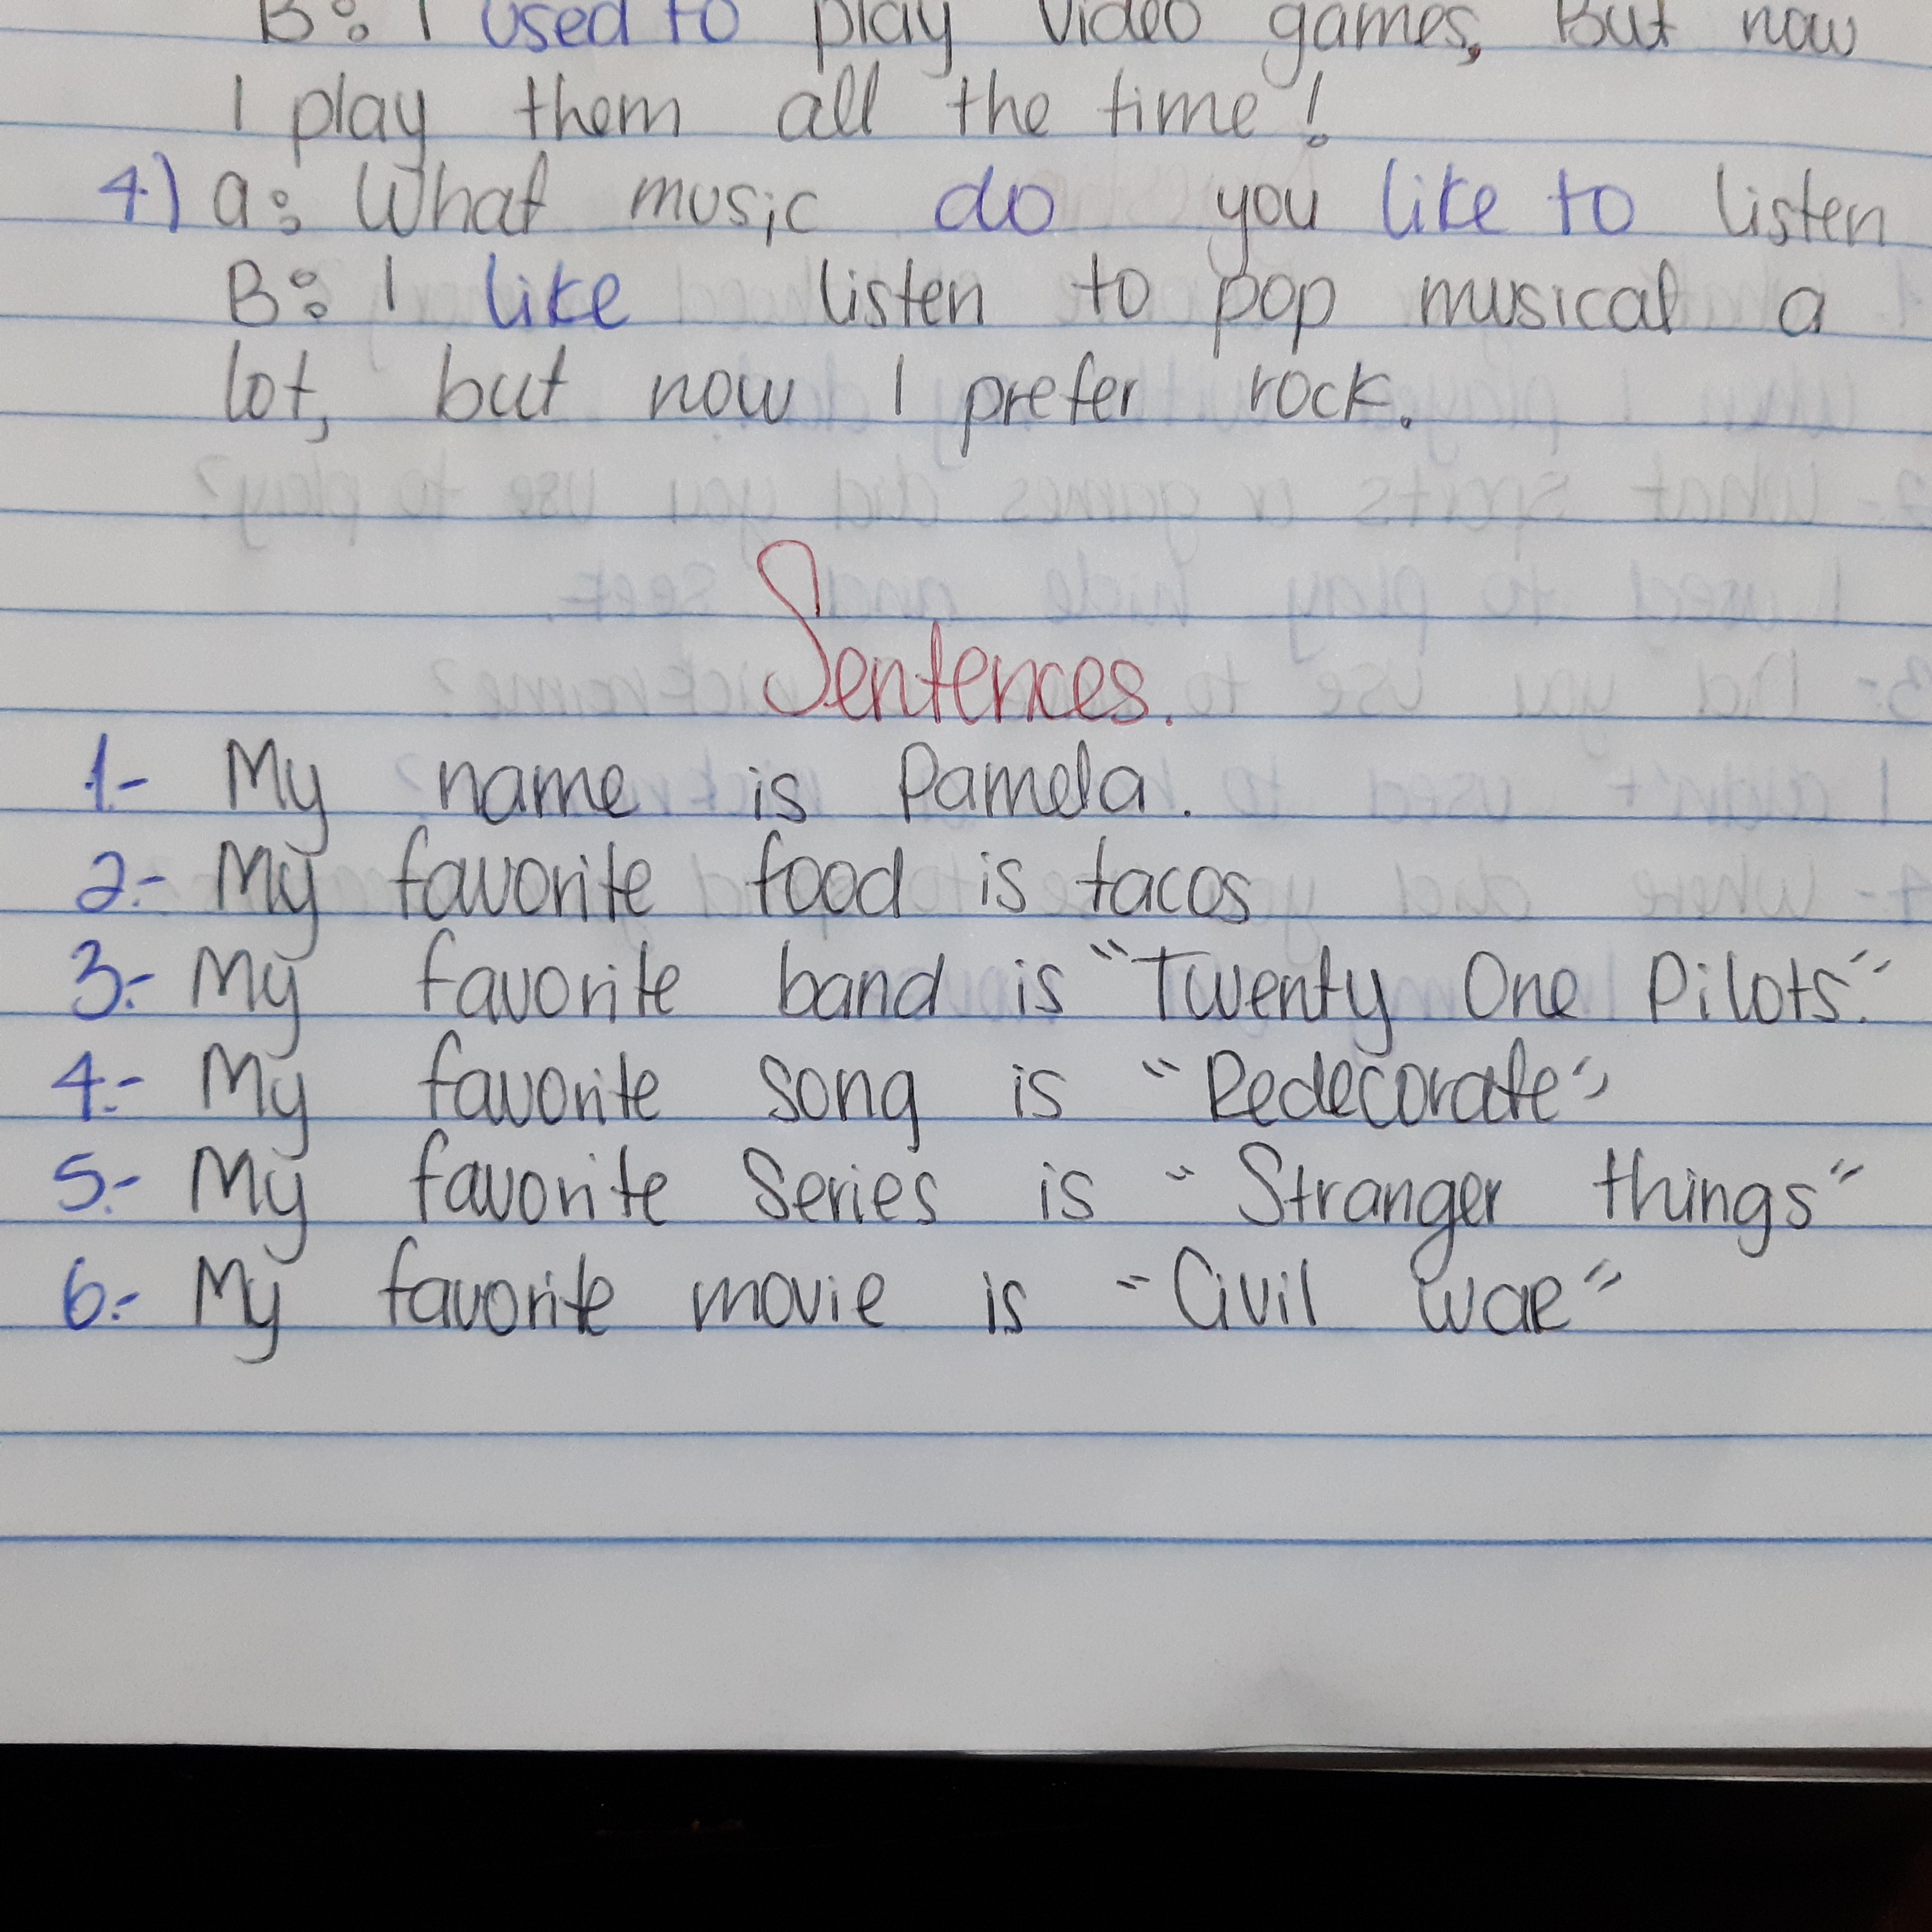 B: I used to play video games, But now
I play them all the time!
4) a: What music do you like to listen
B: I like listen to pop musical a
lot, but now I prefer rock.
Sentences.
1.- My name is Pamela.
2.- My favorite food is tacos
3.- My favorite band is "Twenty One Pilots."
4.- My favorite song is "Redecorate"
5.- My favorite Series is "Stranger things"
6.- My favorite movie is "Civil war"